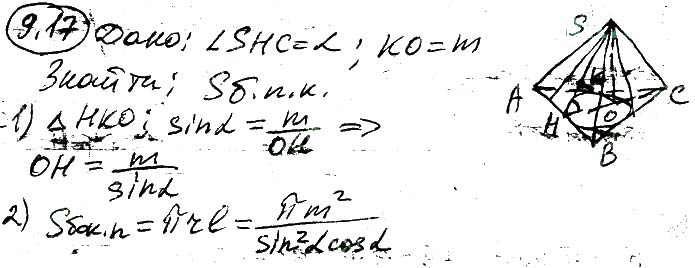 9.17 Дано: ∠SHC=α; KO=m
Знайти: Sб.п.к.
1) △HKO; sinα = m/OH =>
OH = m/sinα
2) Sбок.п = πrl = πm²/sin²α cosα
S
A
K
C
H
O
B